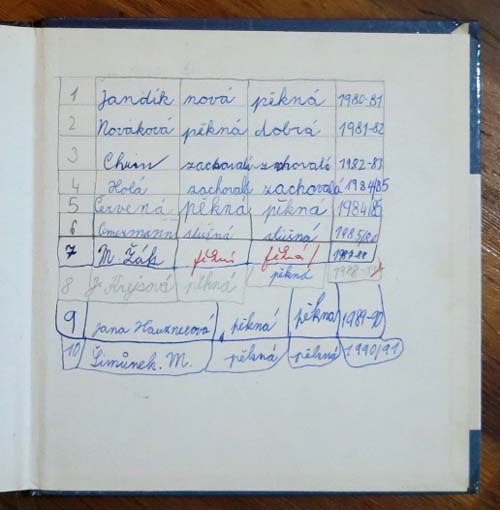 1 Jandík nová pěkná 1980-81
2 Nováková pěkná dobrá 1981-82
3 Chum zachovalá zachovalá 1982-83
4 Holá zachovalá zachovalá 1984/85
5 Červená pěkná pěkná 1984/85
6 slušná slušná
7 M. Žák pěkná pěkná
8 pěkná pěkná
9 Jana Hauznerová pěkná pěkna 1989-90
10 Šimůnek. M. pěkná pěkná 1990/91